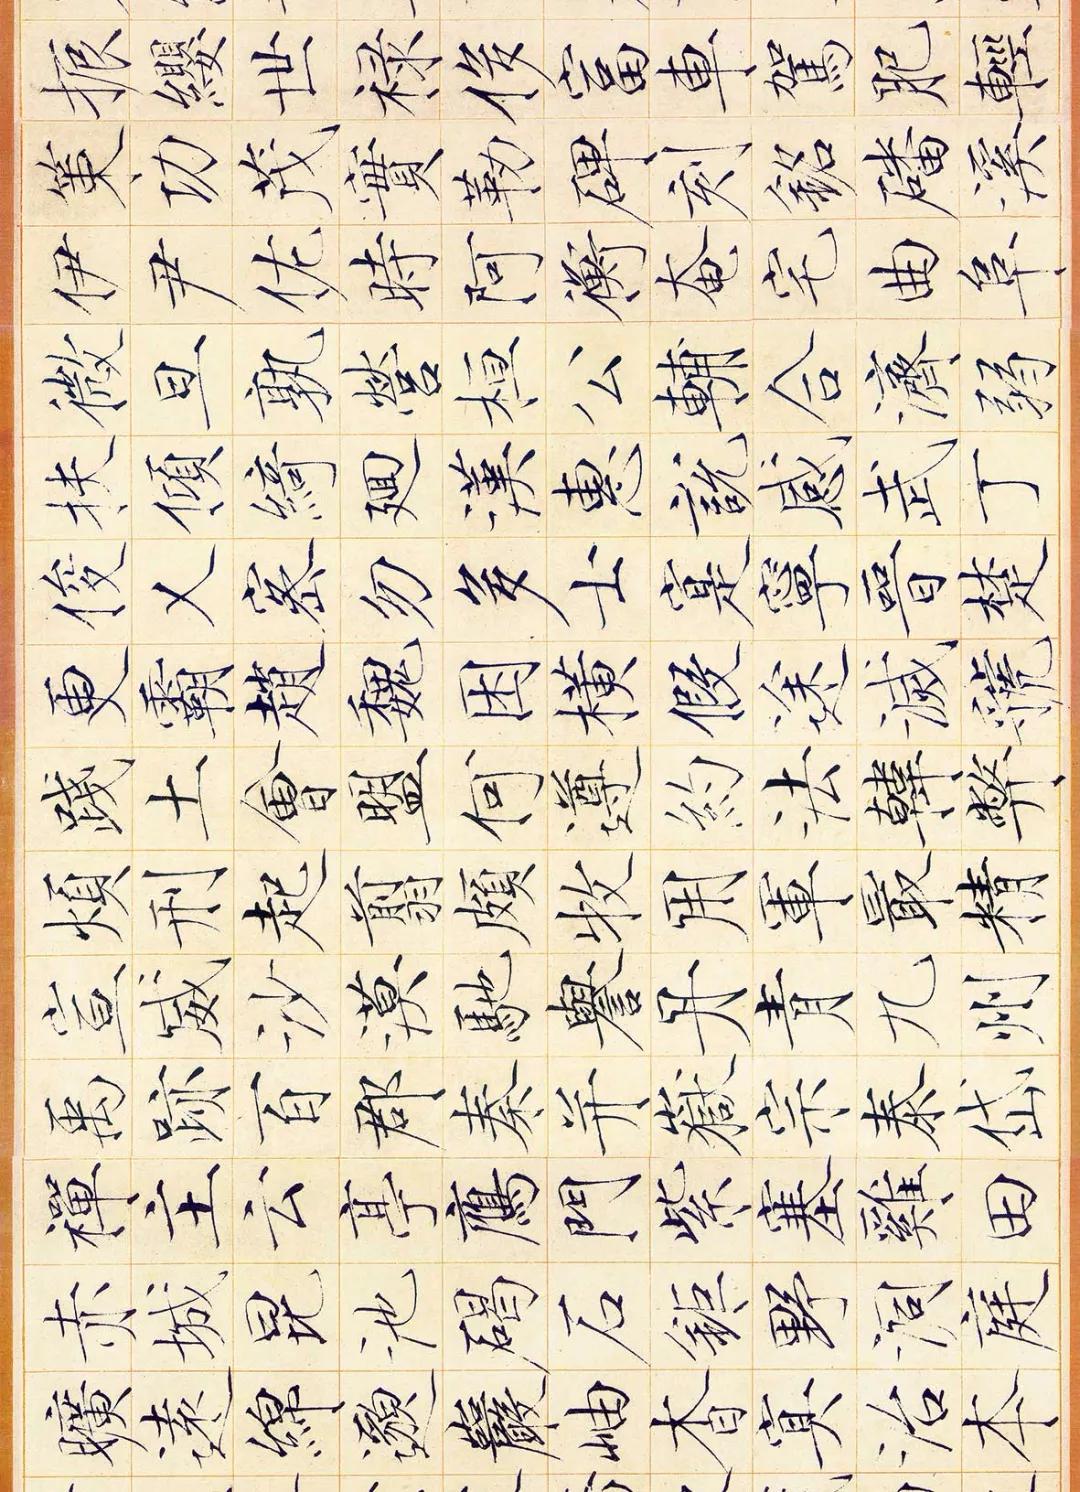 振纓世祿侈富車駕肥輕
策功茂實勒碑刻銘磻溪
伊尹佐時阿衡奄宅曲阜
微旦孰營桓公輔合濟弱
扶傾綺廻漢惠說感武丁
俊乂密勿多士寔寧晉楚
更霸趙魏困橫假途滅虢
踐土會盟何遵約法韓弊
煩刑起翦頗牧用軍最精
宣威沙漠馳譽丹青九州
禹跡百郡秦并嶽宗泰岱
禪主云亭鴈門紫塞雞田
赤城昆池碣石鉅野洞庭
曠遠綿邈巖岫杳冥治本